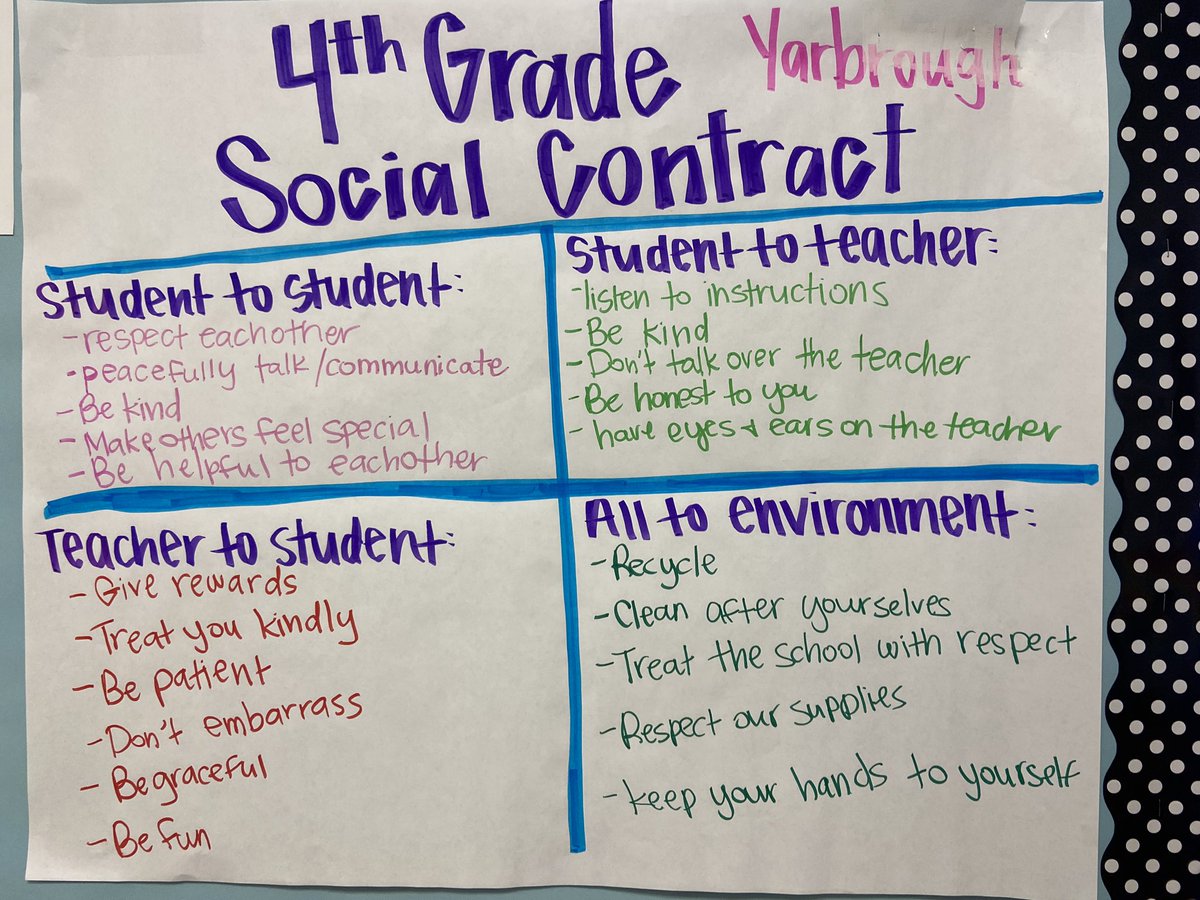 4th Grade Yarbrough
Social Contract
Student to student:
- respect eachother
- peacefully talk/communicate
- Be kind
- Make others feel special
- Be helpful to eachother
Student to teacher:
- listen to instructions
- Be kind
- Don't talk over the teacher
- Be honest to you
- have eyes & ears on the teacher
Teacher to student:
- Give rewards
- Treat you kindly
- Be patient
- Don't embarrass
- Be graceful
- Be fun
All to environment:
- Recycle
- Clean after yourselves
- Treat the school with respect
- Respect our supplies
- keep your hands to yourself